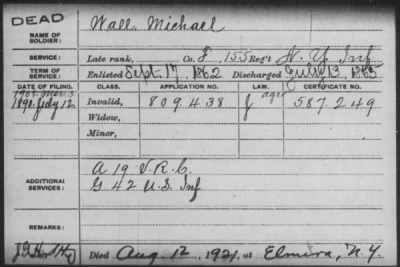 DEAD
NAME OF SOLDIER: Wall Michael
SERVICE: Late rank, Co. F, 155 Reg't N. Y. Inf
TERM OF SERVICE: Enlisted Sept. 17, 1862 Discharged July 13, 1865
DATE OF FILING. CLASS. APPLICATION NO. LAW. CERTIFICATE NO.
1908. Mar. 3. age
1890. July 12 Invalid, 809438 J 587249
Widow,
Minor,
A 19 V. R. C.
ADDITIONAL SERVICES: G 42 U.S. Inf
REMARKS:
Died Aug 12, 1921, at Elmira, N.Y.